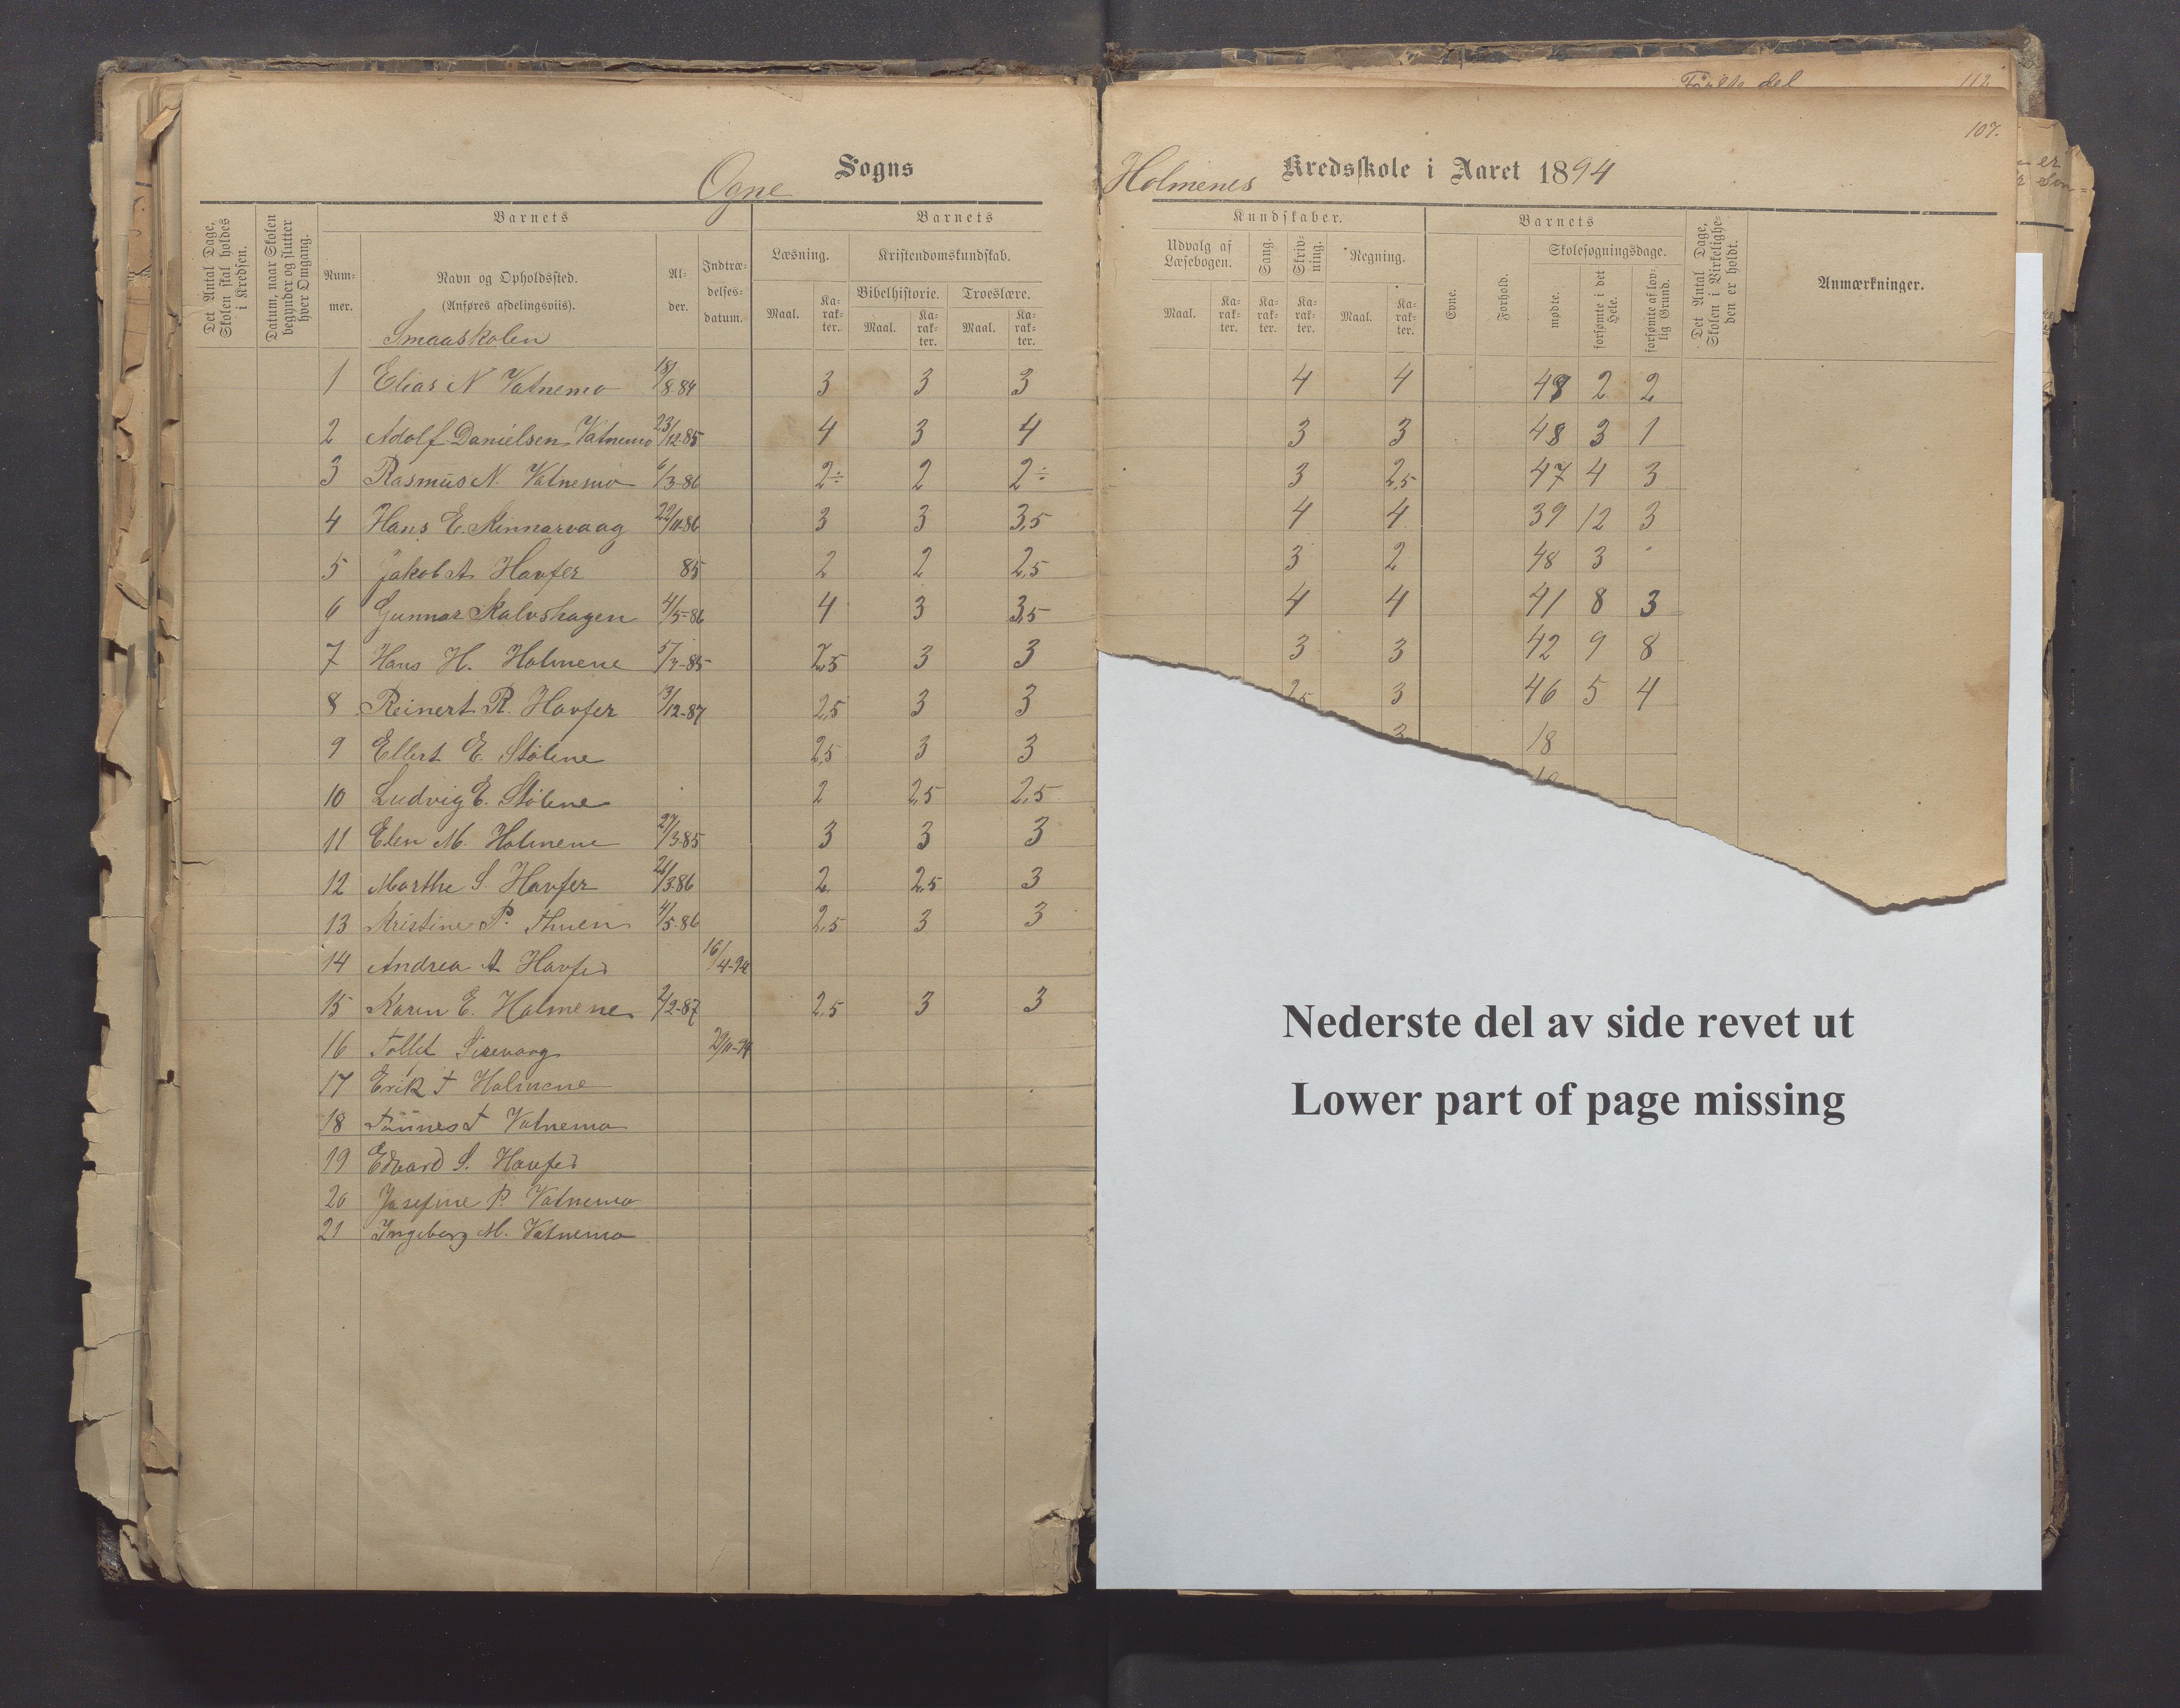 Første del 112
107.
Ogne Sogns
Holmenes Kredsskole i Aaret 1894
Det Antal Dage, Skolen skal holdes i Kredsen.
Datum, naar Skolen begynder og slutter hver Omgang.
Barnets
Num-mer.
Navn og Opholdssted.
(Anføres afdelingsviis).
Smaaskolen
Al-der.
Indtræ-delses-datum.
Barnets
Læsning.
Maal.
Ka-rak-ter.
Kristendomskundskab.
Bibelhistorie.
Maal.
Ka-rak-ter.
Troeslære.
Maal.
Ka-rak-ter.
Kundskaber.
Udvalg af Læsebogen.
Maal.
Ka-rak-ter.
Sang.
Ka-rak-ter.
Skriv-ning.
Ka-rak-ter.
Regning.
Maal.
Ka-rak-ter.
Barnets
Evne.
Forhold.
Skolesøgningsdage.
mødte.
forsømte i det Hele.
forsømte af lov-lig Grund.
Det Antal Dage, Skolen i Virkelighe-den er holdt.
Anmærkninger.
1 Elias N Vatnemo 18/8-84 3 3 3 4 4 48 2 2
2 Adolf Danielsen Vatnemo 23/12-85 4 3 4 3 3 48 3 1
3 Rasmus N. Vatnemo 6/3-86 2÷ 2 2÷ 3 2,5 47 4 3
4 Hans E. Kinnarvaag 22/11-86 3 3 3,5 4 4 39 12 3
5 Jakob A Havfer 85 2 2 2,5 3 2 48 3
6 Gunnar Kalvshagen 4/5-86 4 3 3,5 4 4 41 8 3
7 Hans H. Holmene 5/7-85 2,5 3 3 3 3 42 9 8
8 Reinert R. Havfer 3/12-87 2,5 3 3 2,5 3 46 5 4
9 Ellert E. Stølene 2,5 3 3 3 18
10 Ludvig E. Stølene 2 2,5 2,5
11 Elen M. Holmene 27/3-85 3 3 3
12 Marthe S. Havfer 26/3-86 2 2,5 3
13 Kristine P. Thuen 4/5-86 2,5 3 3
14 Andrea A Havfer 16/4-94
15 Karen E. Holmene 2/2-87 2,5 3 3
16 Tollef Sirevaag 29/11-94
17 Erik T Holmene
18 Tønnes T Vatnemo
19 Edvard S. Havfer
20 Josefine P. Vatnemo
21 Ingeborg M. Vatnemo
Nederste del av side revet ut
Lower part of page missing